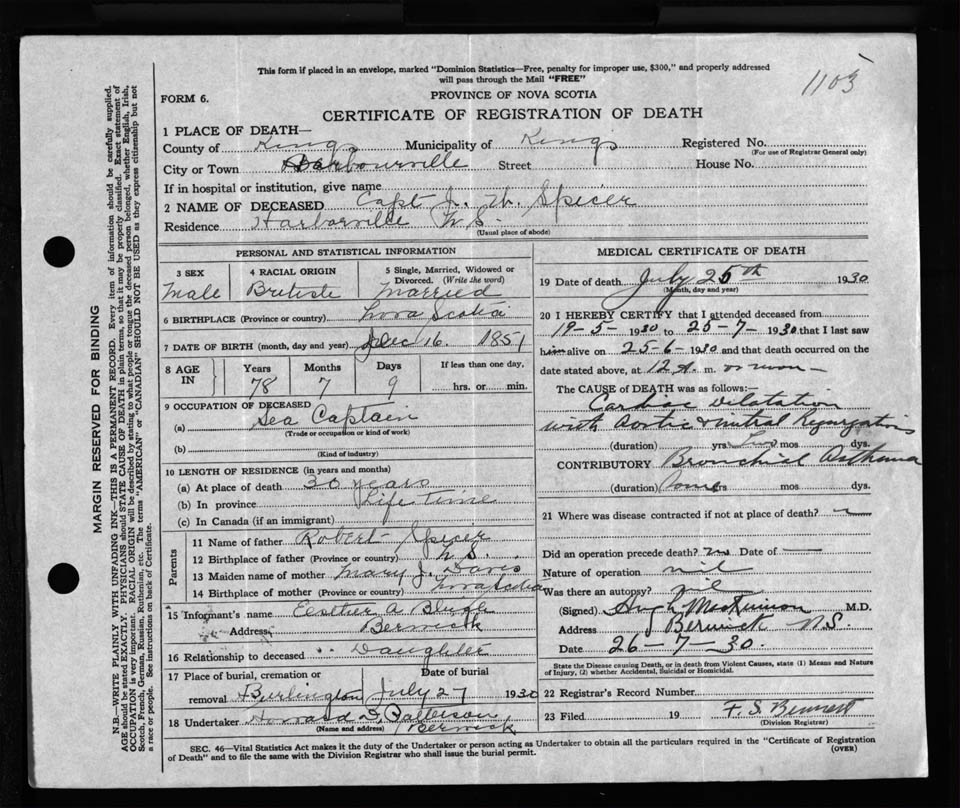 This form if placed in an envelope, marked "Dominion Statistics—Free, penalty for improper use, $300," and properly addressed
will pass through the Mail "FREE"
1103
FORM 6.
PROVINCE OF NOVA SCOTIA
CERTIFICATE OF REGISTRATION OF DEATH
1 PLACE OF DEATH—
County of Kings Municipality of Kings Registered No.
(For use of Registrar General only)
City or Town Harbourville Street House No.
If in hospital or institution, give name
2 NAME OF DECEASED Capt J. W. Spicer
Residence Harborville N S.
(Usual place of abode)
PERSONAL AND STATISTICAL INFORMATION
3 SEX
Male
4 RACIAL ORIGIN
British
5 Single, Married, Widowed or
Divorced. (Write the word)
Married
6 BIRTHPLACE (Province or country) Nova Scotia
7 DATE OF BIRTH (month, day and year) Dec 16. 1851
8 AGE
IN
Years
78
Months
7
Days
9
If less than one day,
hrs. or min.
9 OCCUPATION OF DECEASED
(a) Sea Captain
(Trade or occupation or kind of work)
(b)
(Kind of industry)
10 LENGTH OF RESIDENCE (in years and months)
(a) At place of death 30 years
(b) In province Life time
(c) In Canada (if an immigrant)
Parents
11 Name of father Robert Spicer
12 Birthplace of father (Province or country) N S.
13 Maiden name of mother Mary J. Davis
14 Birthplace of mother (Province or country) Nova Scotia
15 Informant's name Esther A
Address Berwick
16 Relationship to deceased Daughter
17 Place of burial, cremation or
removal Burlington
Date of burial
July 27 1930
18 Undertaker Howard D. Patterson
(Name and address) Berwick
MEDICAL CERTIFICATE OF DEATH
19 Date of death July 25th 1930
(Month, day and year)
20 I HEREBY CERTIFY that I attended deceased from
19-5-1930 to 25-7-1930 that I last saw
him alive on 25-6-1930 and that death occurred on the
date stated above, at 12 m. or noon—
The CAUSE of DEATH was as follows:
Cardiac Dilatation
with Aortic & mitral Regurgitation
(duration) yrs. mos dys.
CONTRIBUTORY Bronchial Asthma
(duration) yrs mos dys.
21 Where was disease contracted if not at place of death?
Did an operation precede death? no Date of —
Nature of operation nil
Was there an autopsy? nil
(Signed) Hugh MacKinnon M.D.
Address Berwick N.S.
Date 26-7-30.
State the Disease causing Death, or in death from Violent Causes, state (1) Means and Nature
of Injury, (2) whether Accidental, Suicidal or Homicidal.
22 Registrar's Record Number
23 Filed 19 F. S Bennett
(Division Registrar)
SEC. 46—Vital Statistics Act makes it the duty of the Undertaker or person acting as Undertaker to obtain all the particulars required in the "Certificate of Registration
of Death" and to file the same with the Division Registrar who shall issue the burial permit.
(OVER)
MARGIN RESERVED FOR BINDING
N.B.—WRITE PLAINLY WITH UNFADING INK—THIS IS A PERMANENT RECORD. Every item of information should be carefully supplied.
AGE should be stated EXACTLY. PHYSICIANS should STATE CAUSE OF DEATH in plain terms, so that it may be properly classified. Exact statement of
OCCUPATION is very important. RACIAL ORIGIN will be described by stating to what people or race the deceased person belonged, whether English, Irish,
Scotch, French, German, Russian, Ruthenian, etc. The terms "AMERICAN" or "CANADIAN" SHOULD NOT BE USED as they express citizenship but not
a race or people. See instructions on back of Certificate.